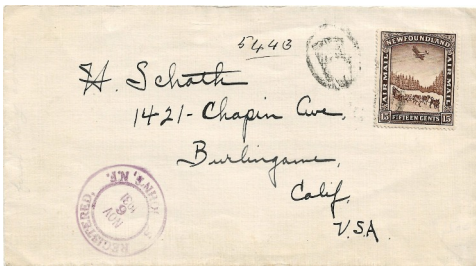 5443
NEWFOUNDLAND
AIR MAIL
AIR MAIL
15 FIFTEEN CENTS 15
H. Schoth
1421- Chapin Ave,
Burlingame,
Calif,
U.S.A.
REGISTERED,
N.F.
NOV